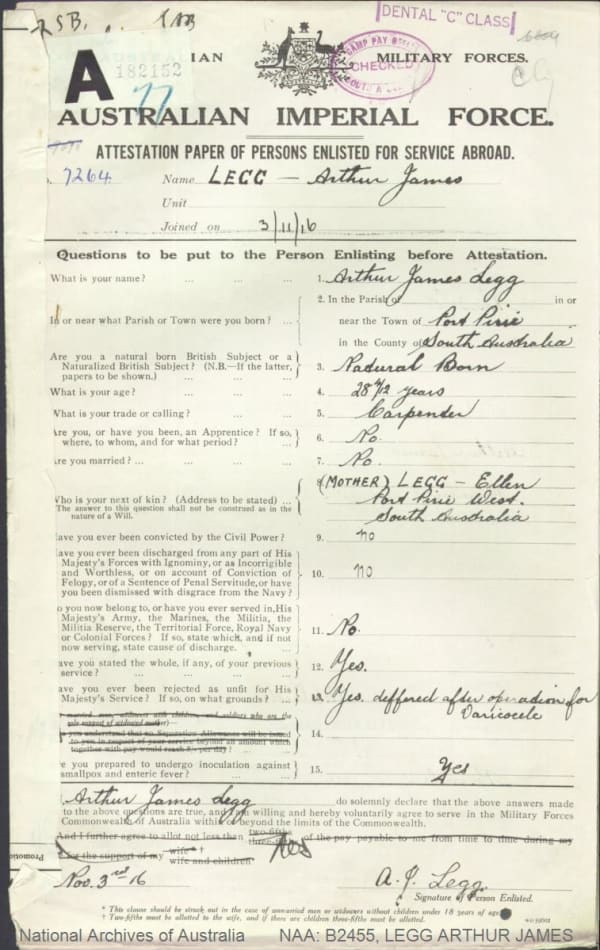 DENTAL "C" CLASS
A
182152
77
MILITARY FORCES.
CHECKED
AUSTRALIAN IMPERIAL FORCE.
ATTESTATION PAPER OF PERSONS ENLISTED FOR SERVICE ABROAD.
7264 Name LEGG – Arthur James
Unit
Joined on 3/11/16
Questions to be put to the Person Enlisting before Attestation.
What is your name? ... ... ... 1. Arthur James Legg
2. In the Parish of in or
In or near what Parish or Town were you born? ... near the Town of Port Pirie
in the County of South Australia
Are you a natural born British Subject or a
Naturalized British Subject? (N.B.—If the latter,
papers to be shown.) ... ... 3. Nadural Born
What is your age? ... ... ... 4. 28 4/12 years
What is your trade or calling? ... ... 5. Carpender
Are you, or have you been, an Apprentice? If so,
where, to whom, and for what period? ... 6. No.
Are you married? ... ... ... ... 7. No.
(MOTHER) LEGG – Ellen
Who is your next of kin? (Address to be stated) ... Port Pirie West.
The answer to this question shall not be construed as in the
nature of a Will. South Australia
ave you ever been convicted by the Civil Power? 9. no
ave you ever been discharged from any part of His
Majesty's Forces with Ignominy, or as Incorrigible
and Worthless, or on account of Conviction of
Felony, or of a Sentence of Penal Servitude, or have
you been dismissed with disgrace from the Navy? 10. no
o you now belong to, or have you ever served in, His
Majesty's Army, the Marines, the Militia, the
Militia Reserve, the Territorial Force, Royal Navy
or Colonial Forces? If so, state which, and if not
now serving, state cause of discharge. 11. No.
ave you stated the whole, if any, of your previous
service? ... ... ... ... 12. Yes.
ave you ever been rejected as unfit for His
Majesty's Service? If so, on what grounds? ... 13. Yes, deffered after operadion for
Varicocele
married men, widowers with children, and soldiers who are the
sole support of widowed mother)—
you understand that no Separation Allowance will be issued
to you in respect of your service beyond an amount which
together with pay would reach 8/- per day? 14.
re you prepared to undergo inoculation against
smallpox and enteric fever? ... ... 15. Yes
Arthur James Legg do solemnly declare that the above answers made
to the above questions are true, and I am willing and hereby voluntarily agree to serve in the Military Forces
Commonwealth of Australia within or beyond the limits of the Commonwealth.
And I further agree to allot not less than two-fifths three-fifths of the pay payable to me from time to time during my
for the support of my wife † wife and children
Promotio
Nov. 3rd 16
A. J. Legg
Signature of Person Enlisted.
* This clause should be struck out in the case of unmarried men or widowers without children under 18 years of age
† Two-fifths must be allotted to the wife, and if there are children three-fifths must be allotted.
National Archives of Australia NAA: B2455, LEGG ARTHUR JAMES